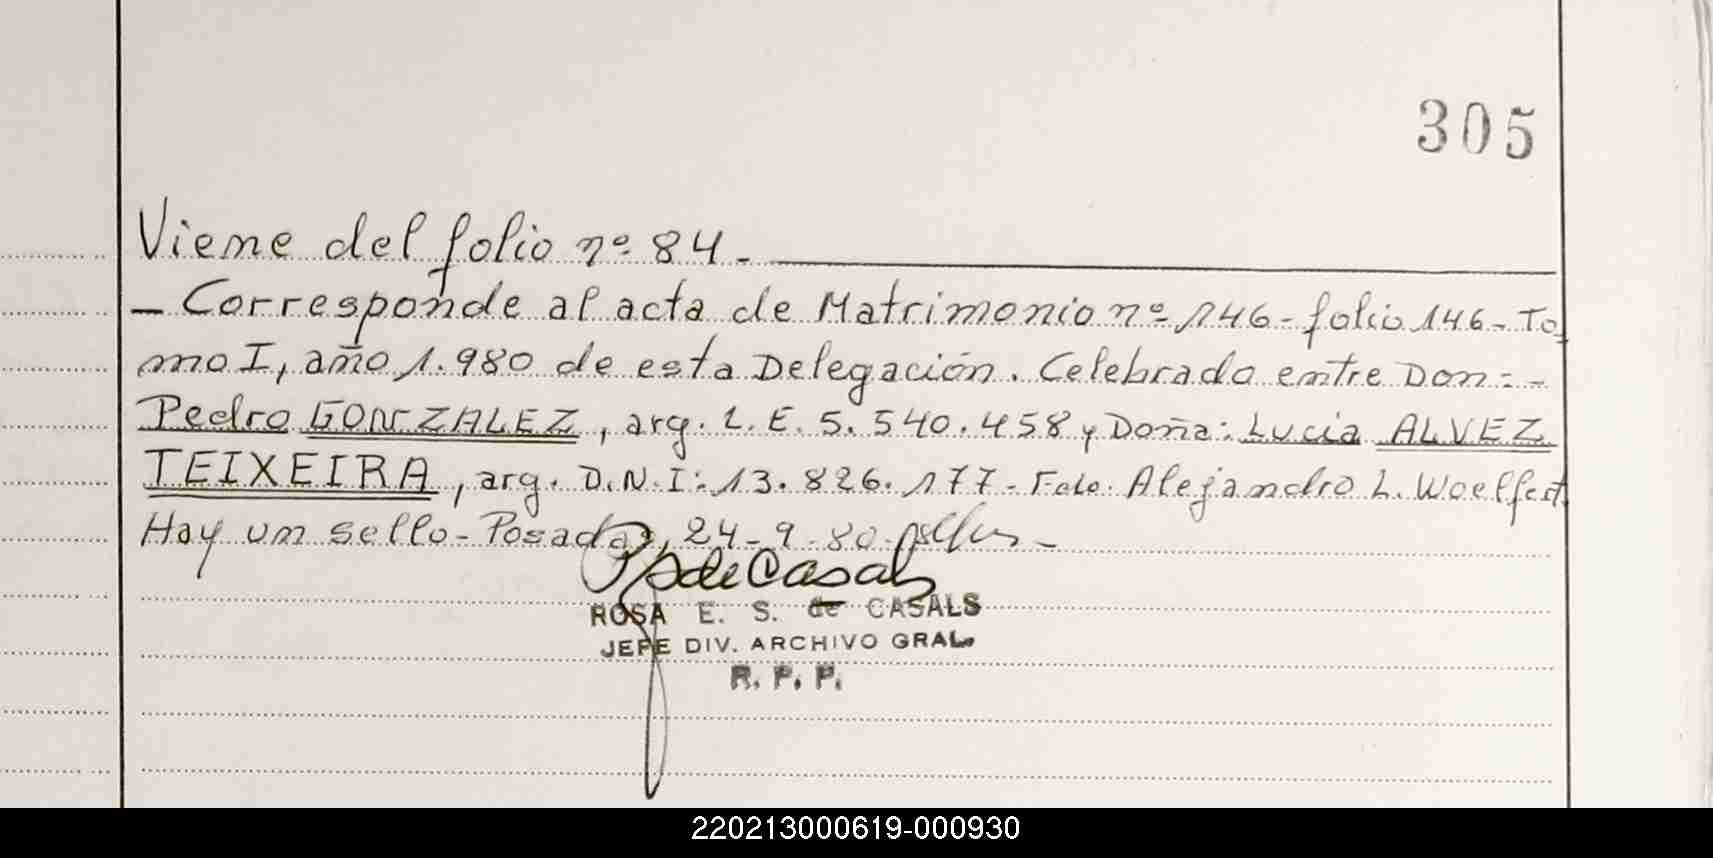 305
Viene del folio nº 84.-
- Corresponde al acta de Matrimonio nº 146- folio 146- To
mo I, año 1.980 de esta Delegación. Celebrado entre Don:-
Pedro GONZALEZ, arg. L.E. 5.540.458 y Doña: Lucia ALVEZ
TEIXEIRA, arg. D.N.I: 13.826.177- Fdo. Alejandro L. Woelfert
Hay un sello- Posadas, 24-9-80-
RSdeCasals
ROSA E. S. de CASALS
JEFE DIV. ARCHIVO GRAL.
R. P. P.
220213000619-000930